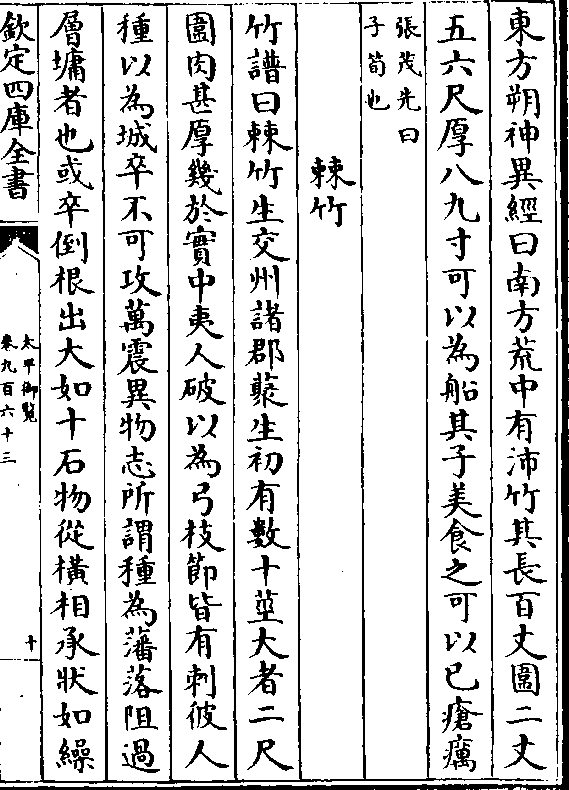 東方朔神異經曰南方荒中有沛竹其長百丈圍二丈
五六尺厚八九寸可以為船其子美食之可以已瘡癘
張茂先曰
子筍也
棘竹
竹譜曰棘竹生交州諸郡藂生初有數十莖大者二尺
圍肉甚厚幾於實中夷人破以為弓枝節皆有刺彼人
種以為城卒不可攻萬震異物志所謂種為藩落阻過
層墉者也或卒倒根出大如十石物從橫相承狀如繰
欽定四庫全書
太平御覧
卷九百六十三
十